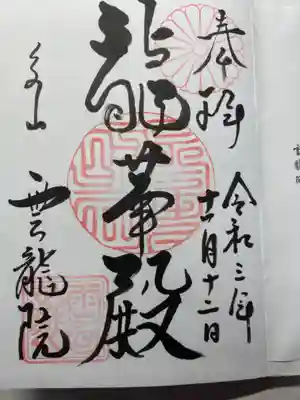 奉拝
令和三年
十一月十二日
龍華殿
泉山
雲龍院